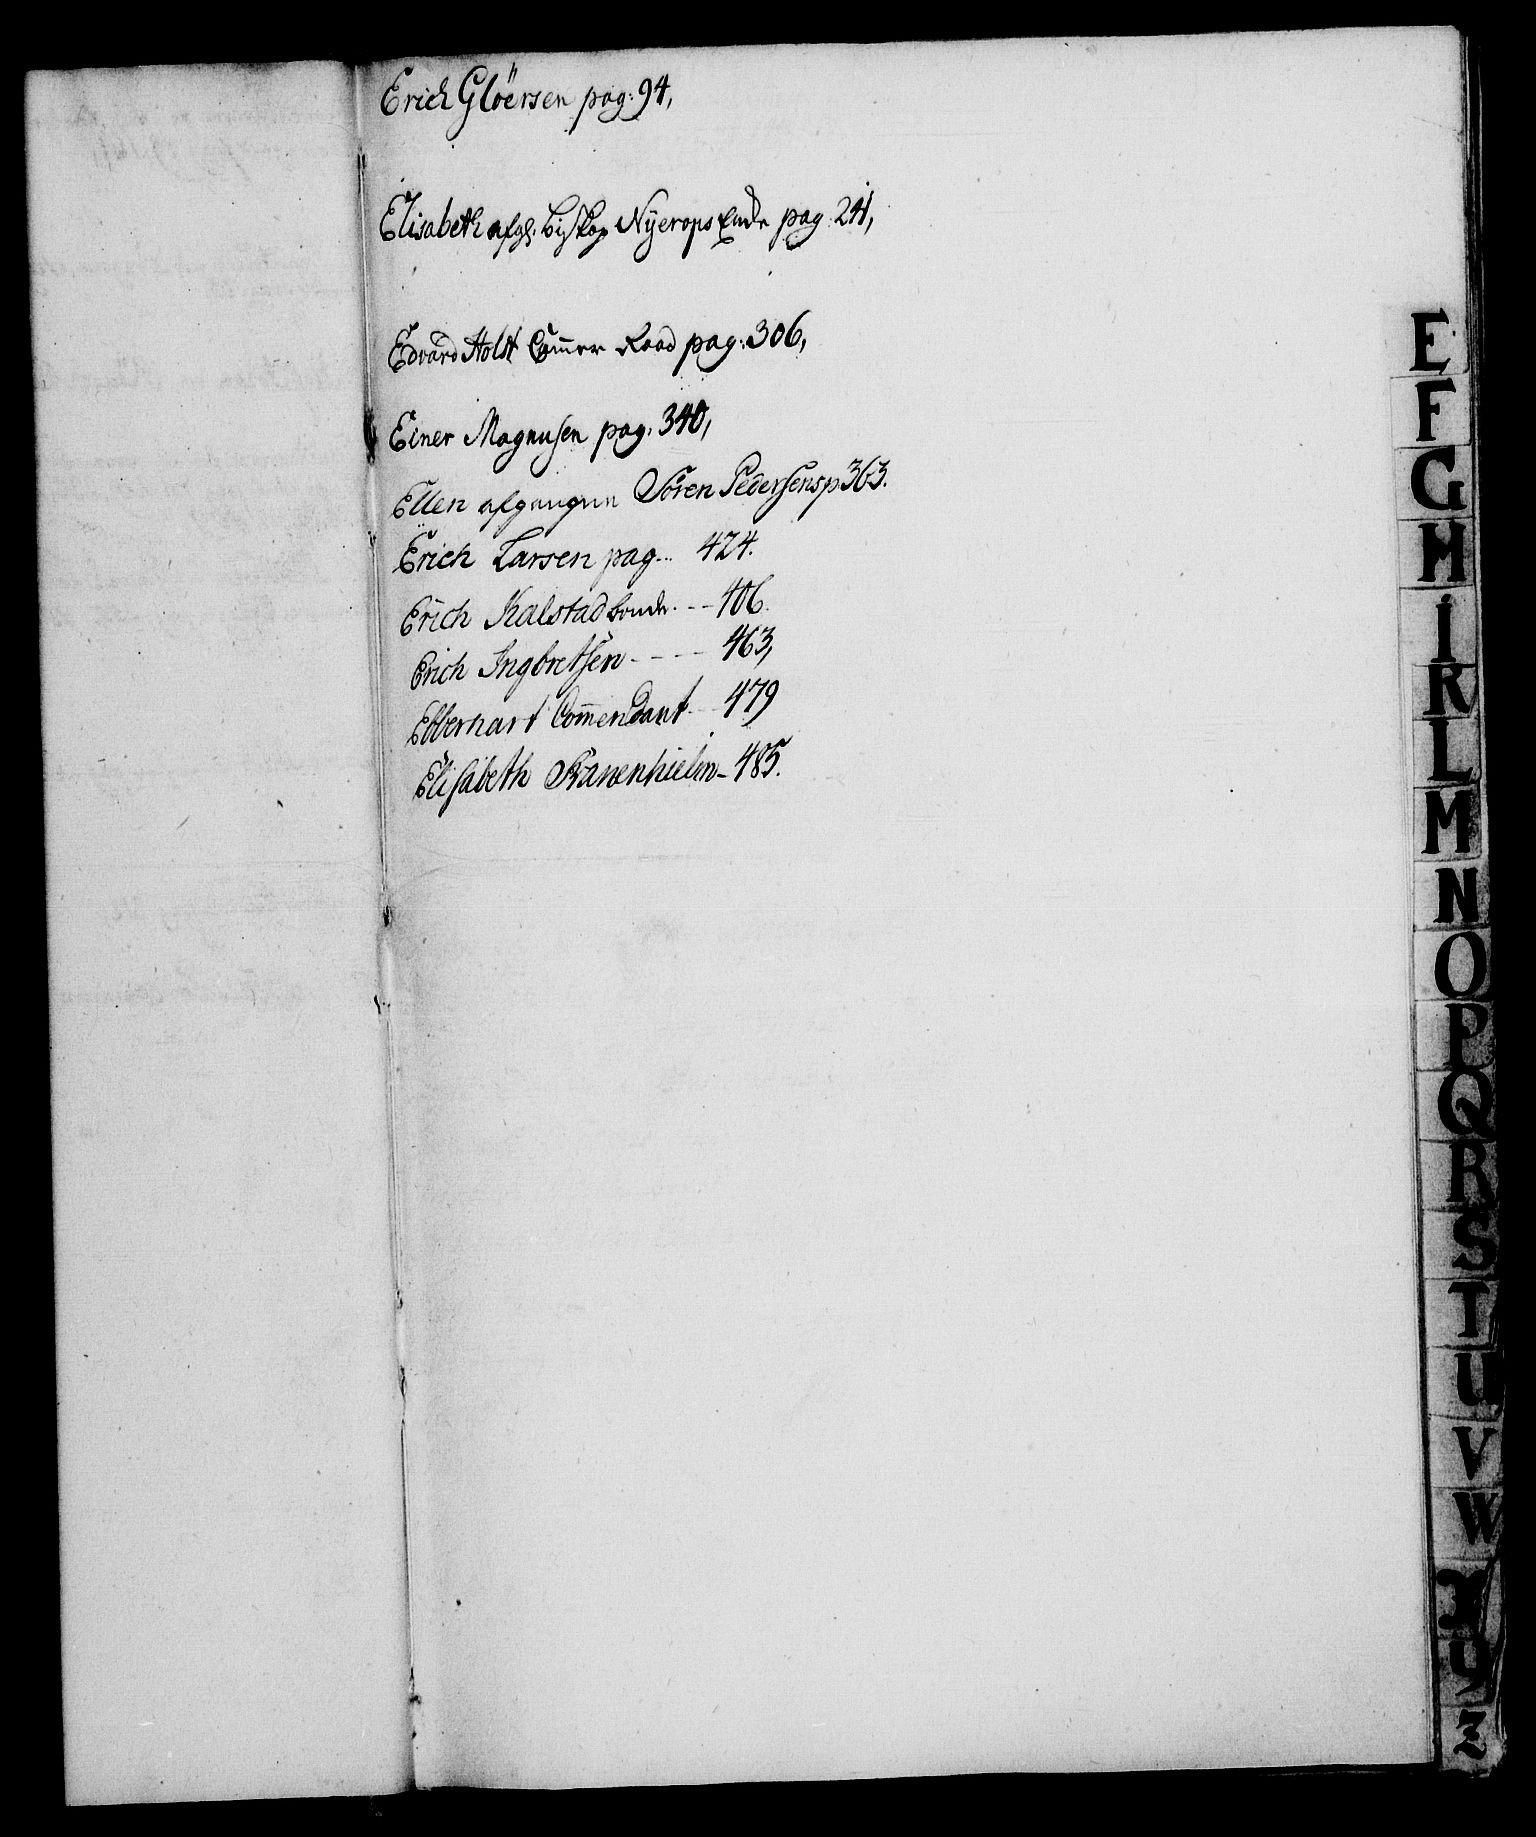 Erich Gloërsen pag: 94,
Elisabeth afg: biskop Nyerops Encke pag 241,
Edvard Holst Com̄er Raad pag: 306,
Einer Magnusen pag. 340,
Ellen afgangne Sören Pedersens p 363.
Erich Larsen pag... 424.
Erich Kalstad bonde. -- 406.
Erich Ingbretsen ---- 463,
Ebbernart Com̄endant -- 479
Elisabeth Tranenhielm - 485.
E
F
G
H
I
K
L
M
N
O
P
Q
R
S
T
U
V
W
X
Y
Z